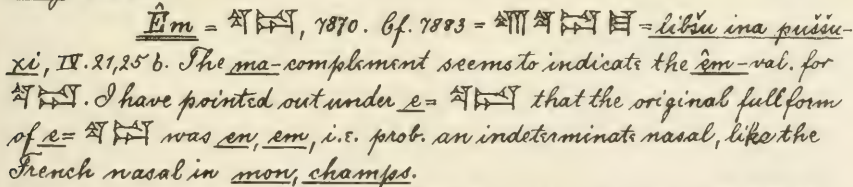 Êm = 𒀀𒁺, 7870. Cf. 7883 = = libšu ina puššu-
xi, IV. 21,25 b. The ma-complement seems to indicate the êm-val. for
. I have pointed out under e = that the original full form
of e = was en, em, i.e. prob. an indeterminate nasal, like the
French nasal in mon, champs.